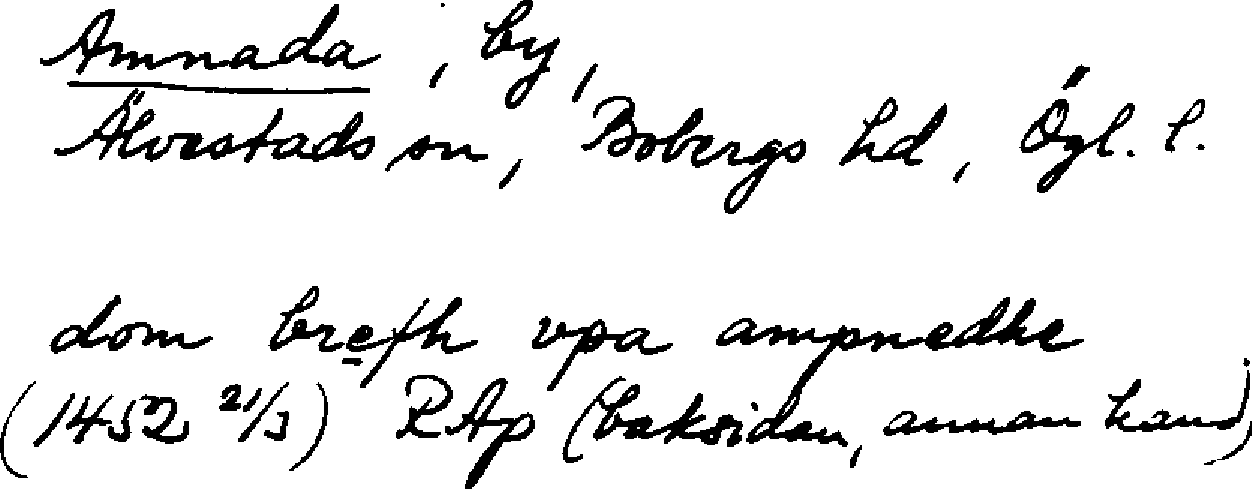 Amnada, by,
Älvestads sn, Bobergs hd, Ögl. l.
dom brefh vpa ampnedhe
(1452 21/3) RAp (baksidan, annan hand)